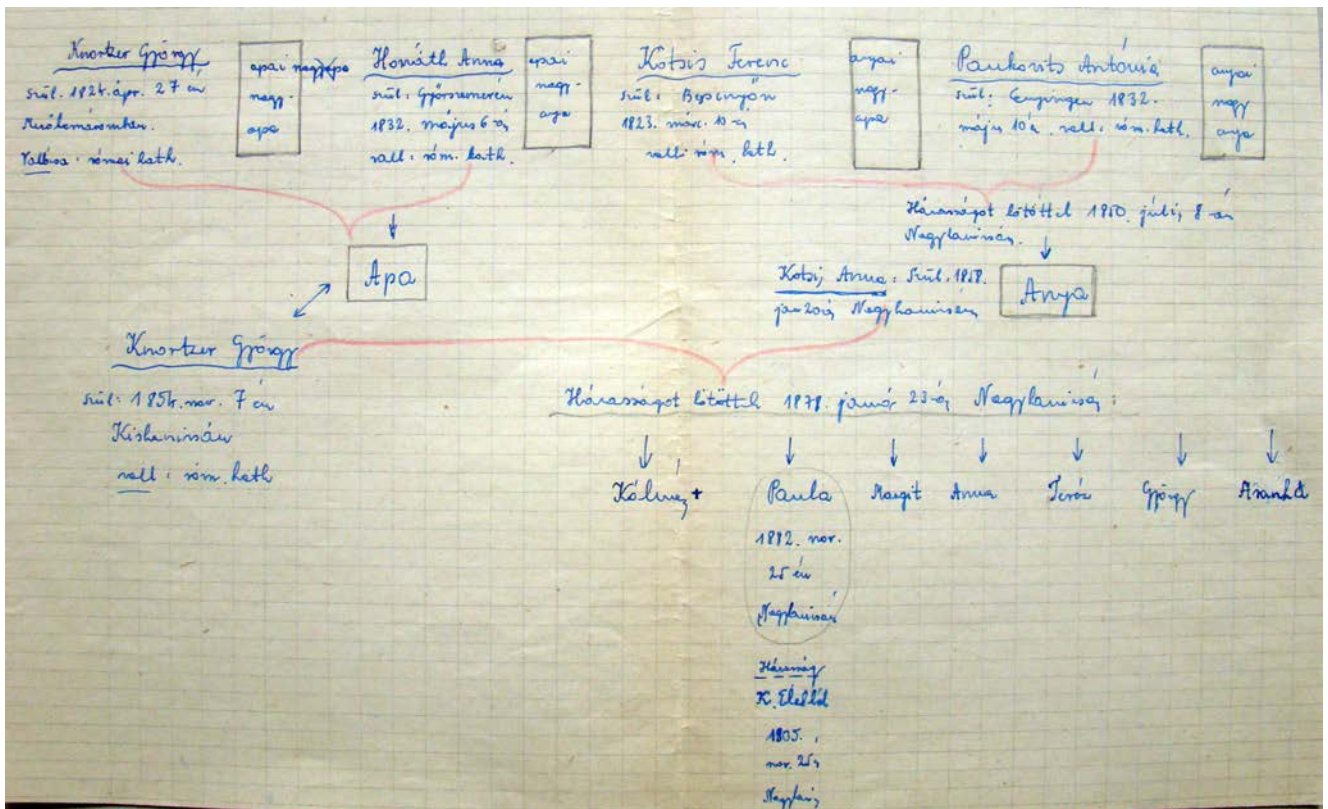 Knortzer György
szül. 1824. ápr. 27 én
Vallása: római kath.
apai nagyapa
nagy-
apa
Horváth Anna
szül: Győrszemerén
1832. május 6-án
vall: róm. kath.
apai
nagy-
anya
Kotsis Ferenc
szül:
1823. márc. 10-én
vall: róm. kath.
anyai
nagy-
apa
Pankovits Antónia
szül: Enyingen 1832.
május 10 én. vall: róm. kath.
anyai
nagy
anya
Házasságot kötöttek 1850. júli, 8-án
Nagykanizsán.
Apa
Kotsis Anna: szül. 1858.
jan 20 án Nagykanizsán
Anya
Knortzer György
szül: 1854. nov. 7 én
Kiskanizsán
vall: róm. kath
Házasságot kötöttek 1878. január 23-án Nagykanizsán:
Kálmán +
Paula
Margit
Anna
Teréz
György
Aranka
1882. nov.
25 én
Nagykanizsán
Házasság
K.
1905.
nov. 25 én